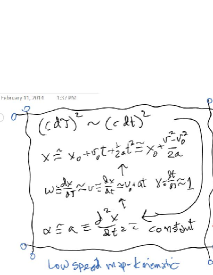 February 11, 2014 1:37 PM
(cdτ)² ~ (cdt)²
x ≅ x₀ + v₀t + ½at² ≅ x₀ + (v² - v₀²)/2a
w ≡ dx/dτ ~ v ≡ dx/dt ≅ v₀ + at γ ≡ dt/dτ ≅ 1
α ≅ a ≡ d²x/dt² ≅ constant
Low speed map-kinematic